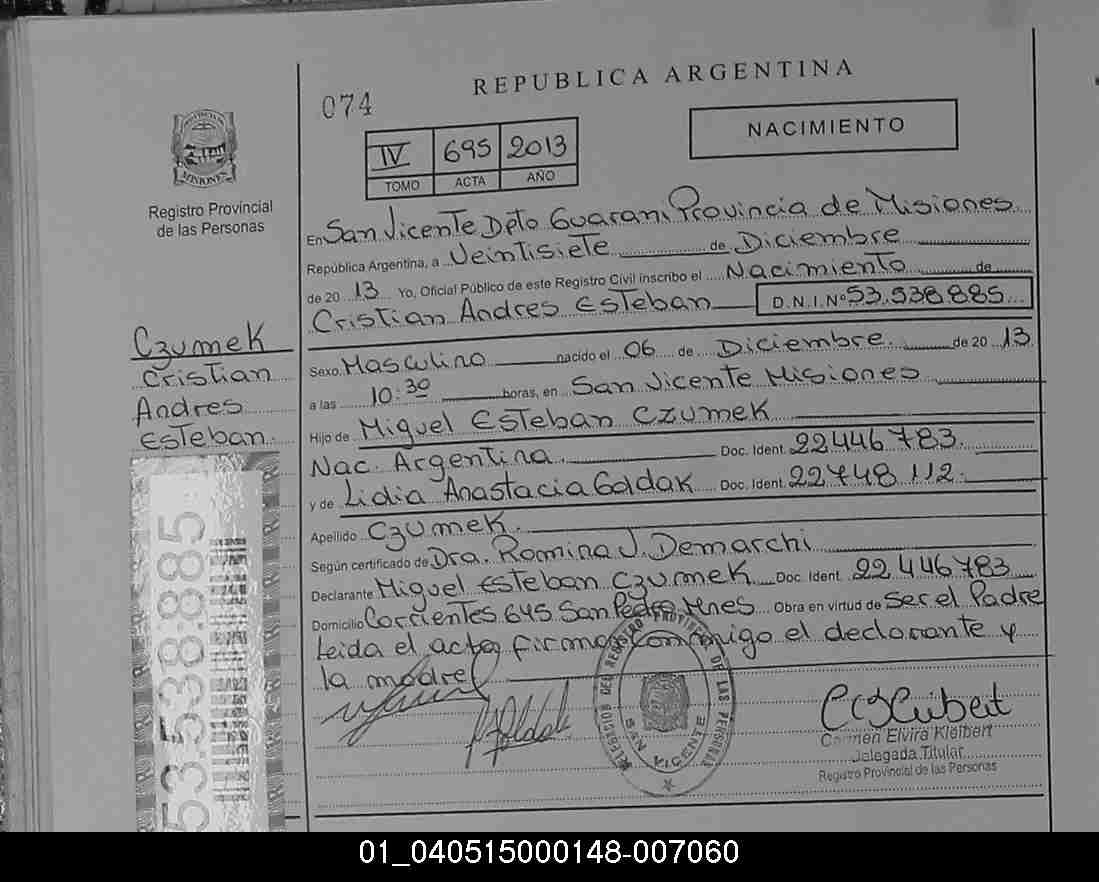 REPUBLICA ARGENTINA
074
NACIMIENTO
IV 695 2013
TOMO ACTA AÑO
PROVINCIA DE MISIONES
Registro Provincial
de las Personas
En San Vicente Dpto Guarani Provincia de Misiones
República Argentina, a Veintisiete de Diciembre
de 20 13 Yo, Oficial Público de este Registro Civil inscribo el Nacimiento de
Cristian Andres Esteban D.N.I. Nº 53.538.885
Czumek
Cristian
Andres
Esteban
Sexo Masculino nacido el 06 de Diciembre de 20 13
a las 10:30 horas, en San Vicente Misiones
Hijo de Miguel Esteban Czumek
Nac. Argentina. Doc. Ident. 22446783.
y de Lidia Anastacia Goldak Doc. Ident. 22748112.
Apellido Czumek.
Según certificado de Dra. Romina J. Demarchi
Declarante Miguel Esteban Czumek Doc. Ident. 22446783
Domicilio Corrientes 645 San Pedro Mnes Obra en virtud de Ser el Padre
Leida el acta firma conmigo el declarante y
la madre
53.538.885
DELEGACION DEL REGISTRO PROVINCIAL DE LAS PERSONAS
SAN VICENTE
Carmen Elvira Kleibert
Delegada Titular
Registro Provincial de las Personas
01_040515000148-007060